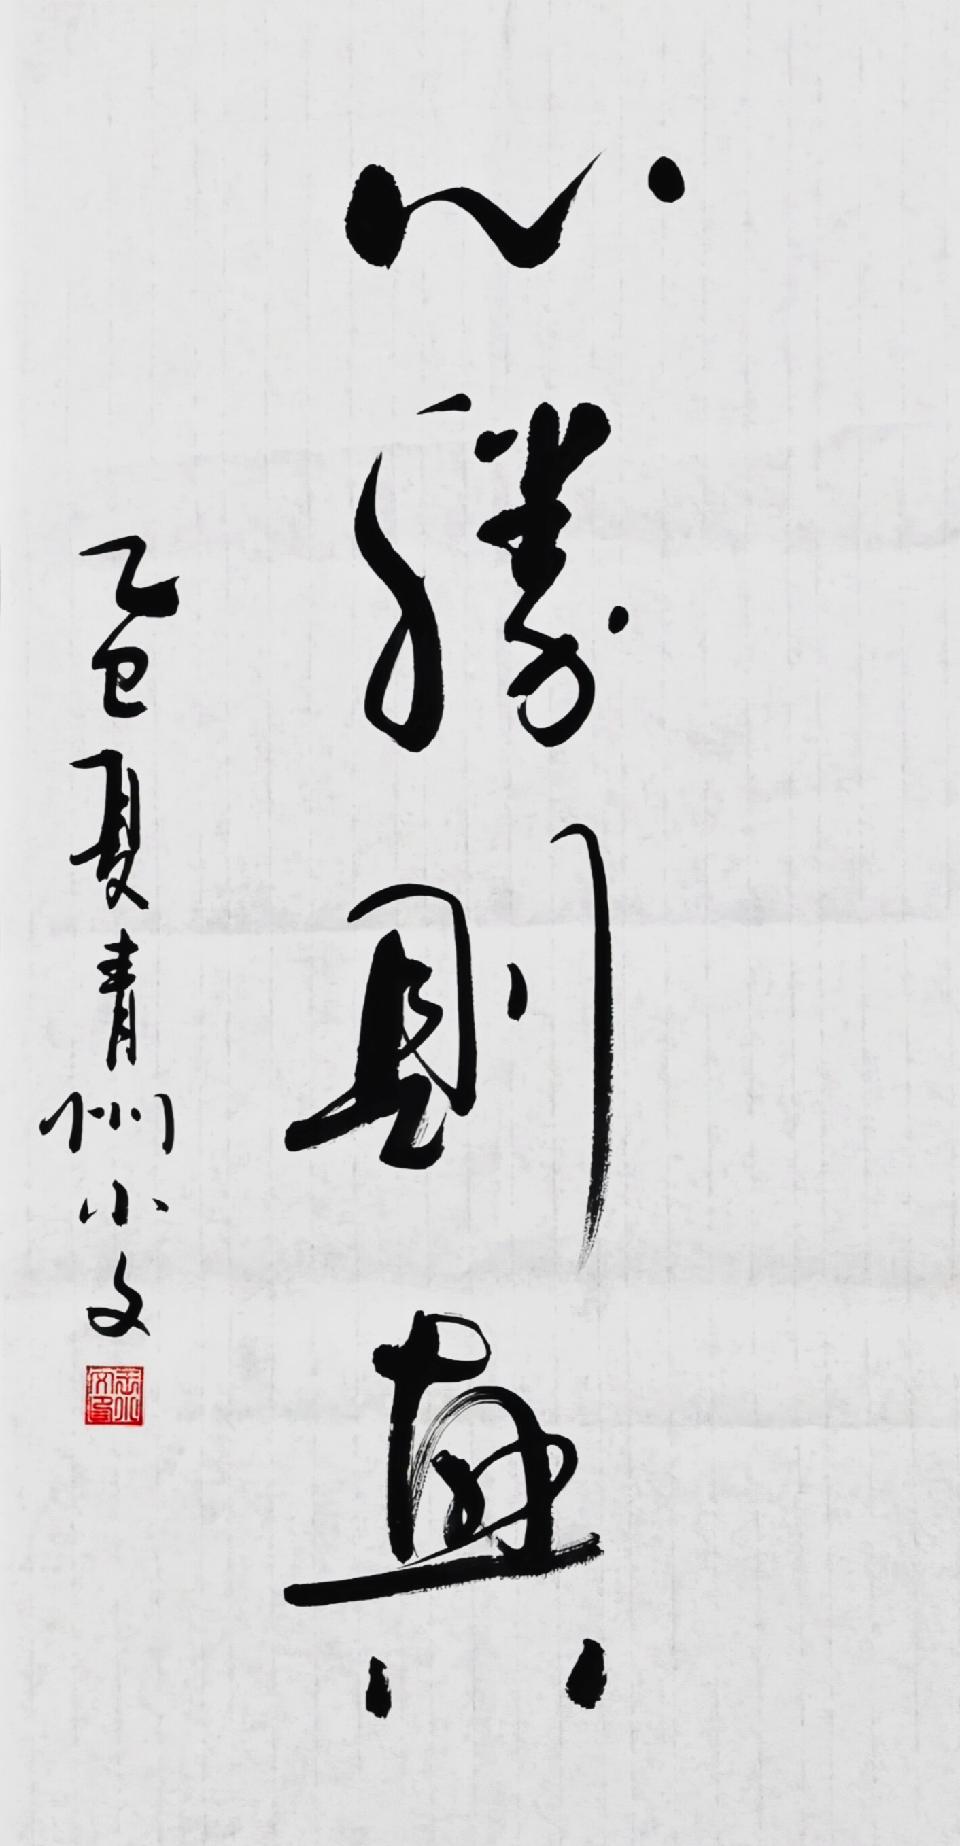 心勝則興
乙巳夏青州小文